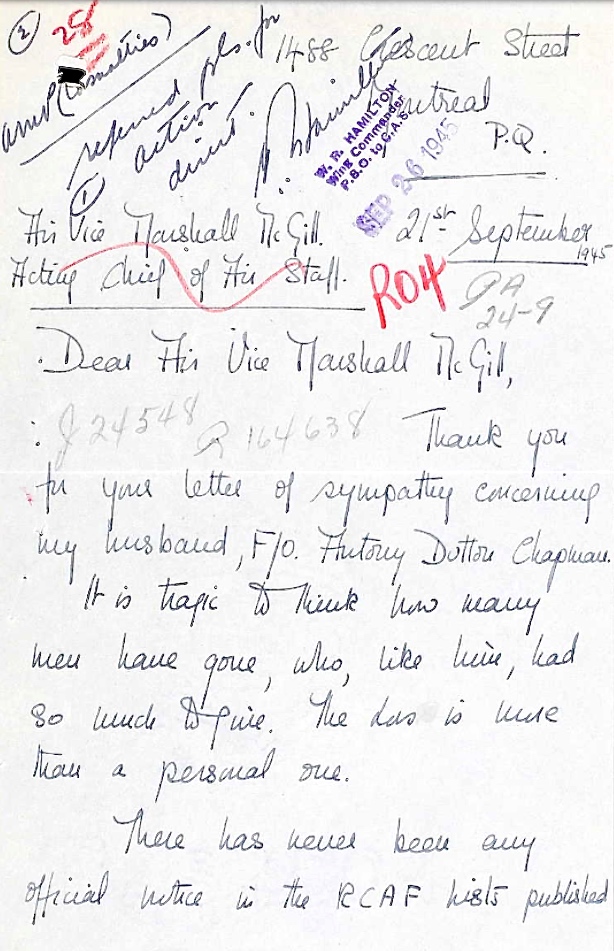 ②
28
AMP (Casualties)
referred pls. for
action
direct.
①
W. R. HAMILTON
Wing Commander
P.S.O. to C.A.S.
SEP 26 1945
1488 Crescent Street
Montreal
P.Q.
21st September
1945
Air Vice Marshall McGill.
Acting Chief of Air Staff.
R04
24-9
Dear Air Vice Marshall McGill,
J 24548 R 164638 Thank you
for your letter of sympathy concerning
my husband, F/O. Antony Dutton Chapman.
It is tragic to think how many
men have gone, who, like him, had
so much to give. The loss is more
than a personal one.
There has never been any
official notice in the RCAF lists published